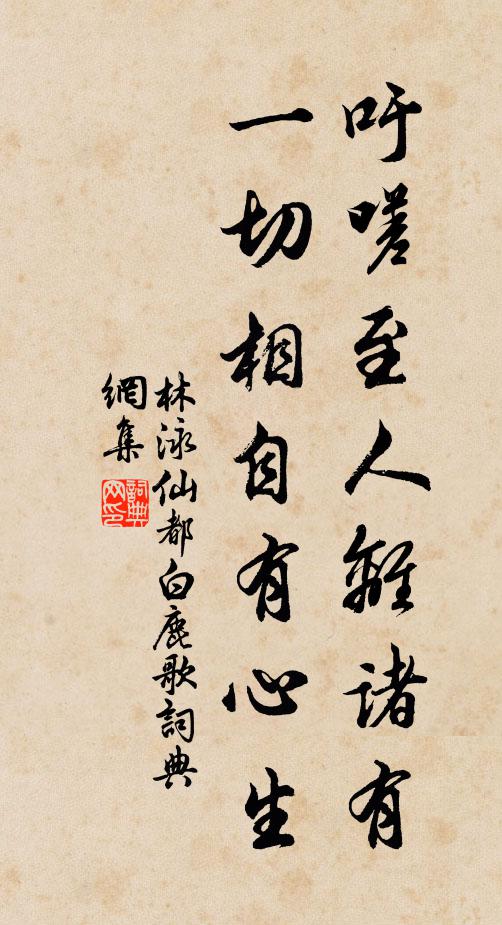 吁嗟至人離諸有
一切相自有心生
林泳仙都白鹿歌詞典
網集
詞典
网印